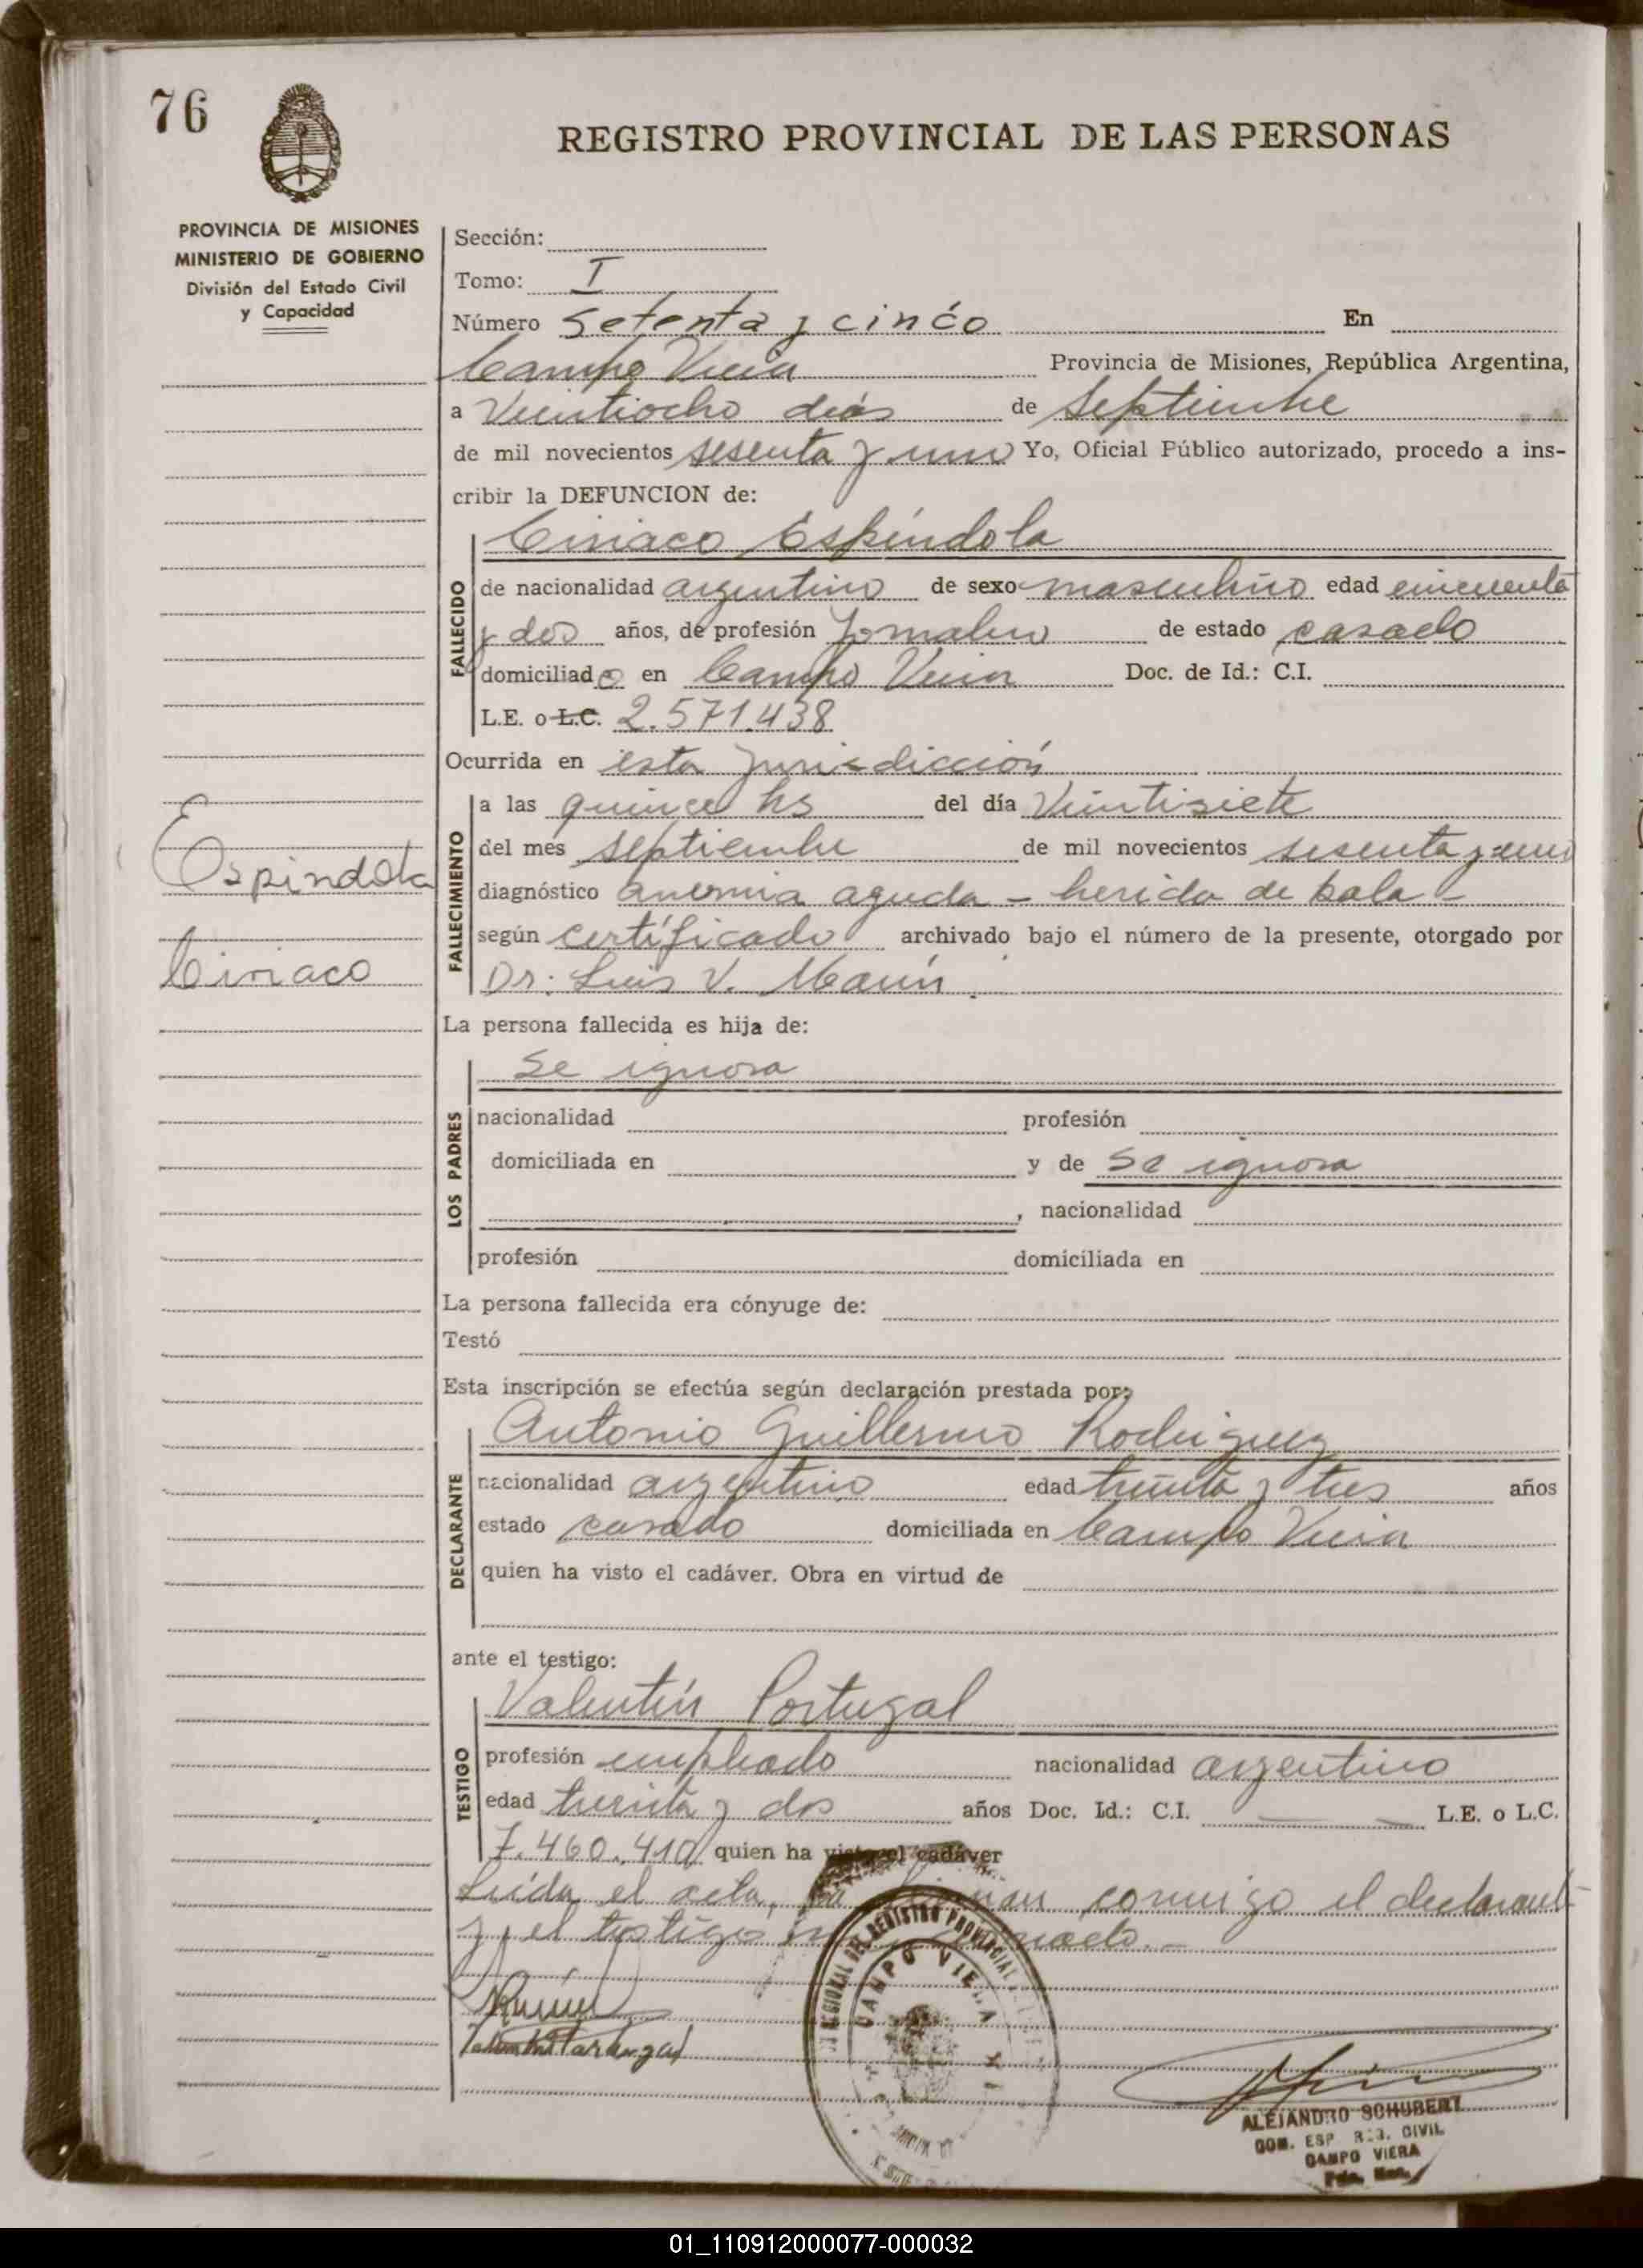 76
REGISTRO PROVINCIAL DE LAS PERSONAS
PROVINCIA DE MISIONES
MINISTERIO DE GOBIERNO
División del Estado Civil
y Capacidad
Sección:
Tomo: I
Número Setenta y cinco En
Campo Viera Provincia de Misiones, República Argentina,
a Veintiocho días de Septiembre
de mil novecientos sesenta y uno Yo, Oficial Público autorizado, procedo a ins-
cribir la DEFUNCION de:
Ciriaco Espíndola
FALLECIDO
de nacionalidad argentino de sexo masculino edad cincuenta
y dos años, de profesión Jornalero de estado casado
domiciliado en Campo Viera Doc. de Id.: C.I.
L.E. o L.C. 2.571.438
Ocurrida en esta Jurisdicción
FALLECIMIENTO
a las quince hs del día Veintisiete
del mes septiembre de mil novecientos sesenta y uno
diagnóstico anemia aguda - herida de bala -
según certificado archivado bajo el número de la presente, otorgado por
Dr: Luis V. Marín
Espindola
Ciriaco
La persona fallecida es hija de:
Se ignora
LOS PADRES
nacionalidad profesión
domiciliada en y de Se ignora
, nacionalidad
profesión domiciliada en
La persona fallecida era cónyuge de:
Testó
Esta inscripción se efectúa según declaración prestada por:
Antonio Guillermo Rodriguez
DECLARANTE
nacionalidad argentino edad treinta y tres años
estado casado domiciliada en Campo Viera
quien ha visto el cadáver. Obra en virtud de
ante el testigo:
Valentín Portugal
TESTIGO
profesión empleado nacionalidad argentino
edad treinta y dos años Doc. Id.: C.I. — L.E. o L.C.
7.460.410 quien ha visto el cadáver
Leída el acta, la firman conmigo el declarante
y el testigo
CAMPO VIERA
ALEJANDRO SCHUBERT
COM. ESP. REG. CIVIL
CAMPO VIERA
01_110912000077-000032